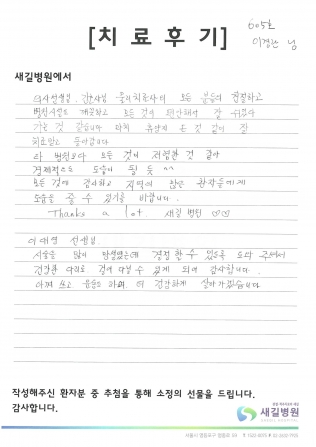 605호
[치료후기]
이경란 님
새길병원에서
의사선생님, 간호사님 물리치료사의 모든 분들의 친절하고
병원시설도 깨끗하고 모든 것이 편안해서 잘 쉬었다
가는 것 같습니다 마치 휴양지 온 것 같이 잘
치료받고 돌아갑니다
타 병원보다 모든 것이 저렴한 것 같아
경제적으로 도움이 될 듯 ^^
모든 것에 감사하고 지역의 많은 환자들에게
도움을 줄 수 있기를 바랍니다.
Thanks a lot. 새길 병원 ♡♡
이대영 선생님
시술을 많이 망설였는데 결정할 수 있도록 도와 주셔서
건강한 다리로 걸어 다닐 수 있게 되어 감사합니다.
아껴 쓰고 운동도 하며, 더 건강하게 살아가겠습니다
작성해주신 환자분 중 추첨을 통해 소정의 선물을 드립니다.
감사합니다.
새길병원